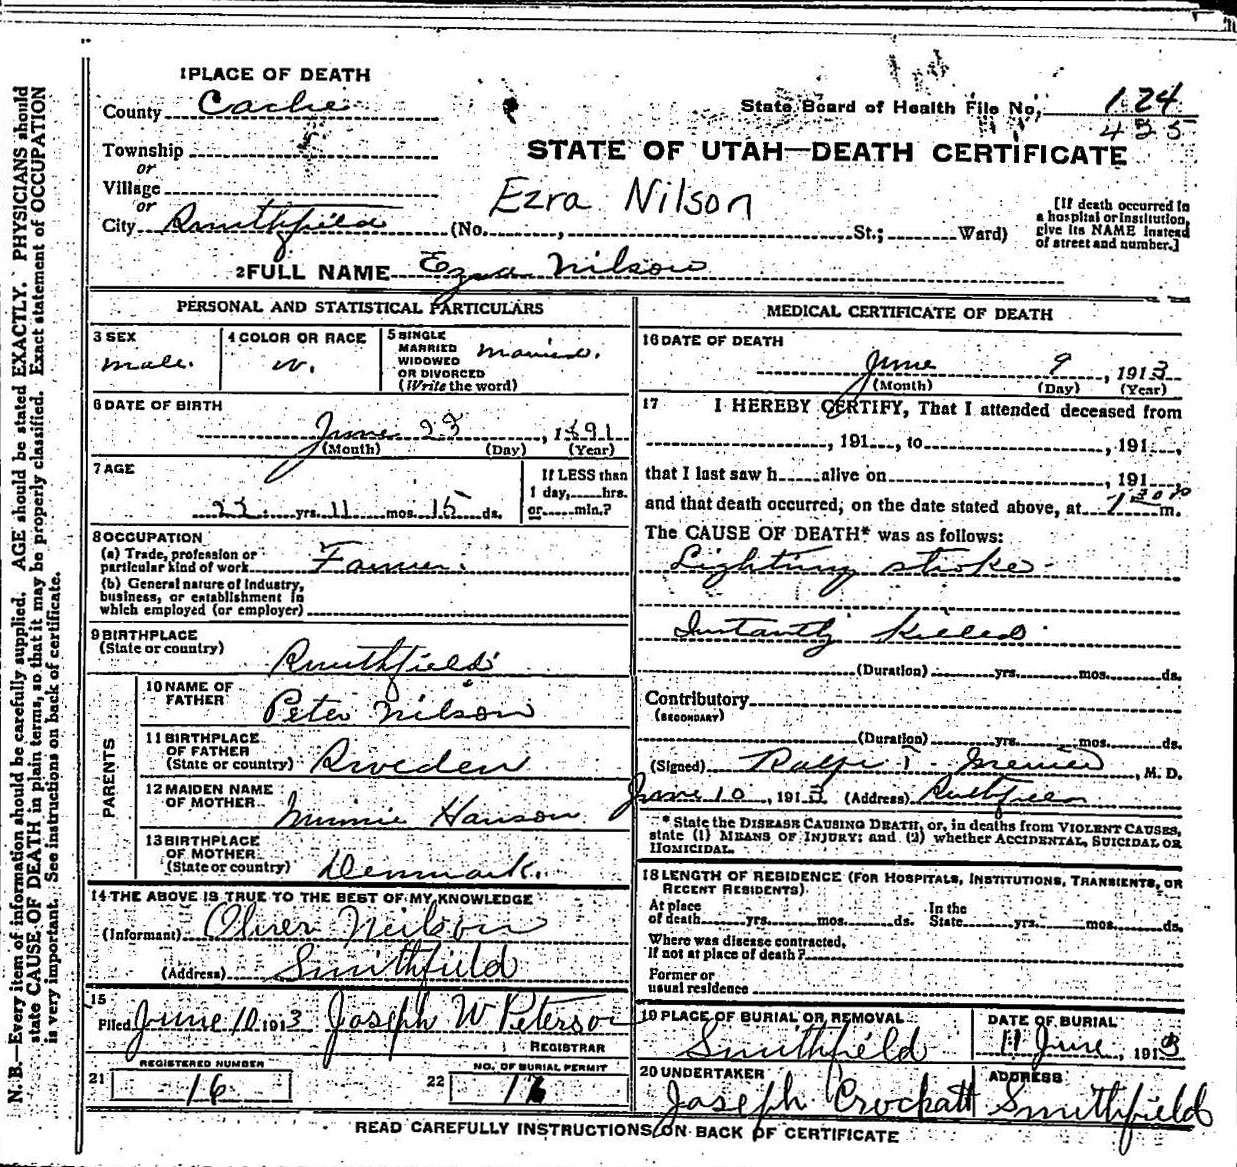 1 PLACE OF DEATH
County Cache
State Board of Health File No. 124
435
Township
or
Village
or
City Smithfield (No. , St.; Ward)
STATE OF UTAH—DEATH CERTIFICATE
Ezra Nilson
[If death occurred in
a hospital or institution,
give its NAME instead
of street and number.]
2 FULL NAME Ezra Nilson
PERSONAL AND STATISTICAL PARTICULARS
3 SEX
male.
4 COLOR OR RACE
w.
5 SINGLE
MARRIED
WIDOWED
OR DIVORCED
(Write the word)
Married.
6 DATE OF BIRTH
June 23, 1891
(Month) (Day) (Year)
7 AGE
yrs. 11 mos. 15 ds.
If LESS than
1 day, hrs.
or min.?
8 OCCUPATION
(a) Trade, profession or
particular kind of work Farmer.
(b) General nature of Industry,
business, or establishment in
which employed (or employer)
9 BIRTHPLACE
(State or country)
Smithfield
PARENTS
10 NAME OF
FATHER
Peter Nilson
11 BIRTHPLACE
OF FATHER
(State or country) Sweden
12 MAIDEN NAME
OF MOTHER
Minnie Hanson
13 BIRTHPLACE
OF MOTHER
(State or country) Denmark.
14 THE ABOVE IS TRUE TO THE BEST OF MY KNOWLEDGE
(Informant) Oliver Neilson
(Address) Smithfield
15
Filed June 10 1913 Joseph W Peterson
REGISTRAR
REGISTERED NUMBER
21 16
NO. OF BURIAL PERMIT
22
MEDICAL CERTIFICATE OF DEATH
16 DATE OF DEATH
June 9, 1913
(Month) (Day) (Year)
17 I HEREBY CERTIFY, That I attended deceased from
, 191 , to , 191 ,
that I last saw h alive on , 191
and that death occurred, on the date stated above, at 130 p m.
The CAUSE OF DEATH* was as follows:
Lightning stroke
Instantly killed
(Duration) yrs. mos. ds.
Contributory
(SECONDARY)
(Duration) yrs. mos. ds.
(Signed) Ralph T. , M. D.
June 10, 1913 (Address) Smithfield
* State the DISEASE CAUSING DEATH, or, in deaths from VIOLENT CAUSES,
state (1) MEANS OF INJURY; and (2) whether ACCIDENTAL, SUICIDAL OR
HOMICIDAL.
18 LENGTH OF RESIDENCE (FOR HOSPITALS, INSTITUTIONS, TRANSIENTS, OR
RECENT RESIDENTS)
At place
of death yrs. mos. ds.
In the
State yrs. mos. ds.
Where was disease contracted,
If not at place of death?
Former or
usual residence
19 PLACE OF BURIAL OR REMOVAL
Smithfield
DATE OF BURIAL
11 June, 1913
20 UNDERTAKER
Joseph Crockatt
ADDRESS
Smithfield
READ CAREFULLY INSTRUCTIONS ON BACK OF CERTIFICATE
N. B.—Every item of information should be carefully supplied. AGE should be stated EXACTLY. PHYSICIANS should
state CAUSE OF DEATH in plain terms, so that it may be properly classified. Exact statement of OCCUPATION
is very important. See instructions on back of certificate.